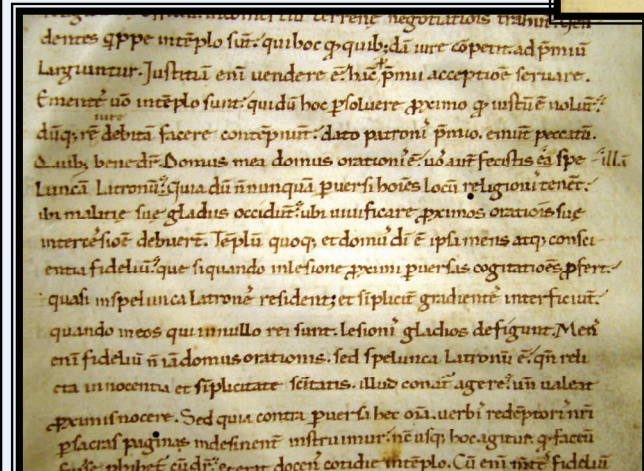 terrene negotiatiois trahunt
dentes qͥppe intẽplo sunt. qui hoc qͥ quib; dã iure cõpetit. ad p̃miũ
Larguntur. Justitiã eni uendere ẽ. hac p̃mii acceptioẽ seruare.
Ementes uõ intẽplo sunt. qui dũ hoc ꝑsoluere ꝓximo qͥ iustũ ẽ nolũt.
dũq; rẽ iure debitã facere contẽpnũt. dato patroni p̃mio. emũt peccatũ.
Quib; bene dr̃. Domus mea domus orationi ẽ. uo aut̃ fecistis eã spe - illã
Luncã Latronũ. Quia dũ ñnunquã ꝑuersi hoies locũ religioni tenẽt.
ibi malitie sue gladus occidũt. ubi uiuificare ꝓximos oratiois sue
intercesioẽ debuert̃. Tẽplũ quoq; et domũ dĩ ẽ ipsa mens atq; consci-
entia fideliũ. que siquando inlesione ꝓximi ꝑuersas cogitatioẽs ꝓfert.
quasi inspelunca Latronẽ resident; et siplicit̃ gradientẽ interficiũt.
quando ineos qui innullo rei sunt. Lesioni gladios defigunt. Mens
eni fideliũ ñ iã domus orationis. sed spelunca Latronũ ẽ. qñ reli
cta innocentia et siplicitate sc̃itatis. illud conat̃ agere. uñ ualeat
ꝓximis nocere. Sed quia contra ꝑuersi hec oĩa. uerbi redẽptori nr̃i
ꝑ sacras paginas indesinent̃ instruimur. nc̃ usq; hoc agitur. qͥ factũ
cũ dr̃. docens cotidie intẽplo. Cũ eni fideliũ